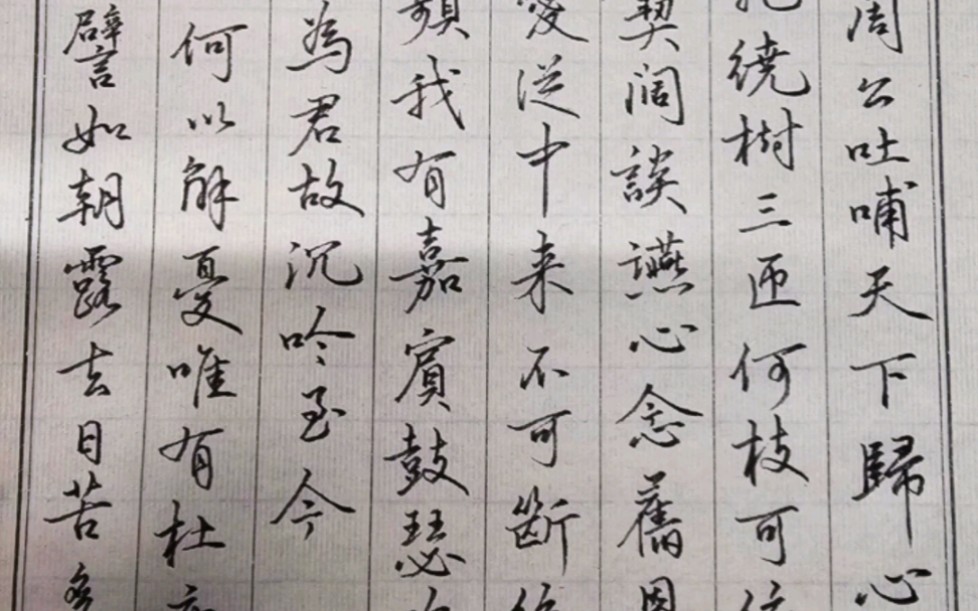 譬如朝露去日苦
何以解憂唯有杜
為君故沉吟至今
蘋我有嘉賓鼓瑟
憂從中来不可斷
契阔談讌心念舊恩
繞樹三匝何枝可依
周公吐哺天下歸心